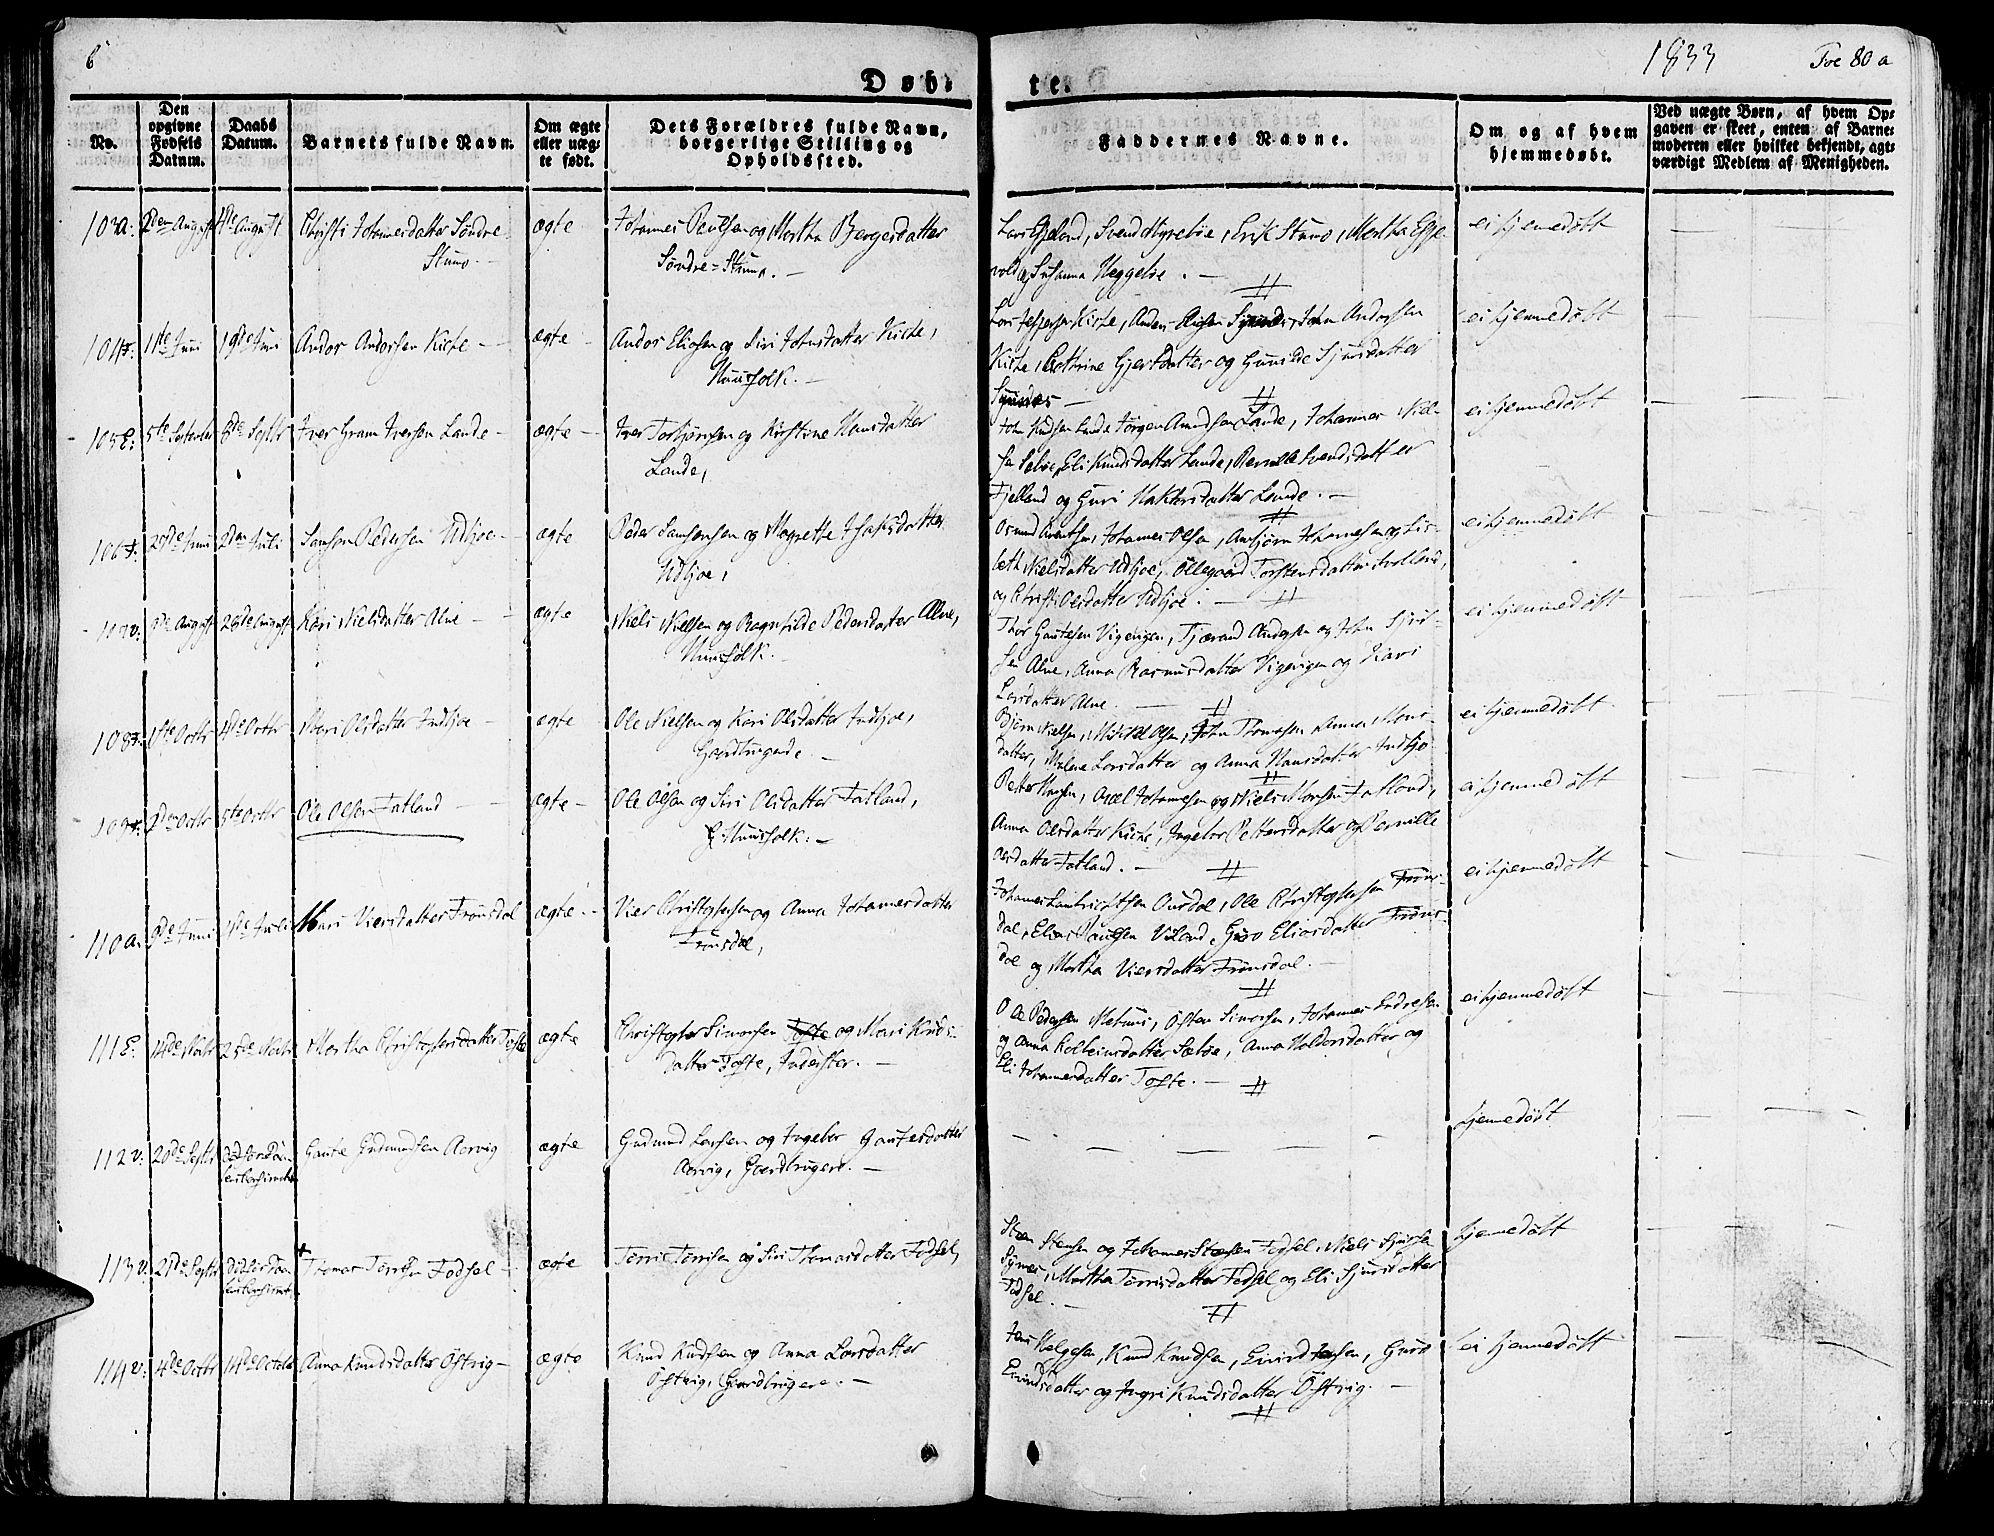 6
1833
Foe 80 a
Døb-
te.
No.
Den opgivne Fødsels Datum.
Daabs Datum.
Barnets fulde Navn.
Om ægte eller uægte født.
Dets Forældres fulde Navn, borgerlige Stilling og Opholdssted.
Faddernes Navne.
Om og af hvem hjemmedøbt.
Ved uægte Børn, af hvem Opgaven er skeet, enten af Barnemoderen eller hvilket bekjendt, agtværdigt Medlem af Menigheden.
103 a: August 4de August Christi Johannesdatter Søndre ægte Johannes Poulsen og Martha Børgesdatter
Stumo.
Søndre-Stumo.
Lars Egeland, Svend Myrebøe, Erik Stumo, Martha Egge-
vold og Susanna Heggebøe.
ei hjemmedøbt
104 11te Juni 19de Juni Andor Andorsen Kirke ægte Andor Eliasen og Siri Johnsdatter Kirke,
Huusfolk.
Kirke, John Andorsen
Kirke, Cathrine Gjertsdatter og Gunilde Sjursdatter
ei hjemmedøbt
105 E: 5te September 8de Septbr Iver Gram Iversen Lande ægte Iver Torbjørnsen og Kirstine Hansdatter
Lande,
John Knudsen Lande Jørgen Amundsen Lande, Johannes Niel-
sen Sebøe, Eli Knudsdatter Lande, Pernille Svendsdatter
Fjelland og Guri Lande.
ei hjemmedøbt
106 29de Juni 2den Juli Samson Pedersen Udbjoe ægte Peder Samsonsen og Magrette Isaksdatter
Udbjoe,
Johannes Olsen, Johannesen og Lis-
beth Nielsdatter Udbjoe, Ollegaard Torstensdatter
og Christi Olsdatter Udbjoe.
ei hjemmedøbt
107 v: August 26de August Kari Nielsdatter Alne ægte Niels Nielsen og Ragnhilde Pedersdatter Alne,
Huusfolk.
Thor Gautesen Vigevigen, Tjærand Andersen og John Sjur-
sen Alne, Anna Rasmusdatter Vigevigen og Kari
Larsdatter Alne.
ei hjemmedøbt
108 1ste Octbr 4de Octbr Mari Olsdatter Indbjoe ægte Ole Nielsen og Kari Olsdatter Indbjoe,
Gaardbrugende
Bjørn Nielsen, Mikkel Olsen, John Thomasen Anna Mons-
datter, Malene Larsdatter og Anna Hansdatter Indbjo
ei hjemmedøbt
109 2den Octbr 5te Octbr Ole Olsen Fatland ægte Ole Olsen og Siri Olsdatter Fatland,
Huusfolk.
Petter Monsen, Axel Johannesen og Niels Monsen Fatland,
Anna Olsdatter Kirke, Ingebor Pettersdatter og Pernille
Olsdatter Fatland.
ei hjemmedøbt
110 a. Juni Juli Mari Viersdatter Frønsdal ægte Vier Christophersen og Anna Johannesdatter
Frønsdal,
Johannes Lambrichtsen Ousdal, Ole Christophersen Frøns-
dal, Elias Paulsen Viland, Guro Eliasdatter Frøns-
dal og Martha Viersdatter Frønsdal.
ei hjemmedøbt
111 E: 14de Novbr 25de Novbr Martha Christophersdatter Tofte ægte Christopher Simonsen Tofte og Mari Knuds-
datter Tofte, Inderster.
Ole Pedersen Østen Simonsen, Johannes Endresen
og Anna Kolbeinsdatter Sæbøe, Anna Haldorsdatter og
Eli Johannesdatter Tofte.
ei hjemmedøbt
112 v: 20de Septbr død før Daa-
ben
Gaute Gudmundsen Aarvig ægte Gudmund Larsen og Ingebor Gautesdatter
Aarvig, Gaardbrugere.
hjemmedøbt
113 v: 21de Septbr død før Daa-
Thomas Tørrisen Fodsel ægte Tørris Tørrisen og Siri Thomasdatter Fodsel,
Sten Stensen og Johannes Stensen Fodsel, Niels Sjursen
Synes, Martha Tørrisdatter Fodsel og Eli Sjursdatter
Fodsel.
hjemmedøbt
114 v: 4de Octbr 14de October Anna Knudsdatter Østvig ægte Knud Knudsen og Anna Larsdatter
Østvig, Gaardbrugere.
Helgesen, Knud Knudsen, Eivind Jensen, Guro
Eivindsdatter og Ingri Knudsdatter Østvig.
ei hjemmedøbt